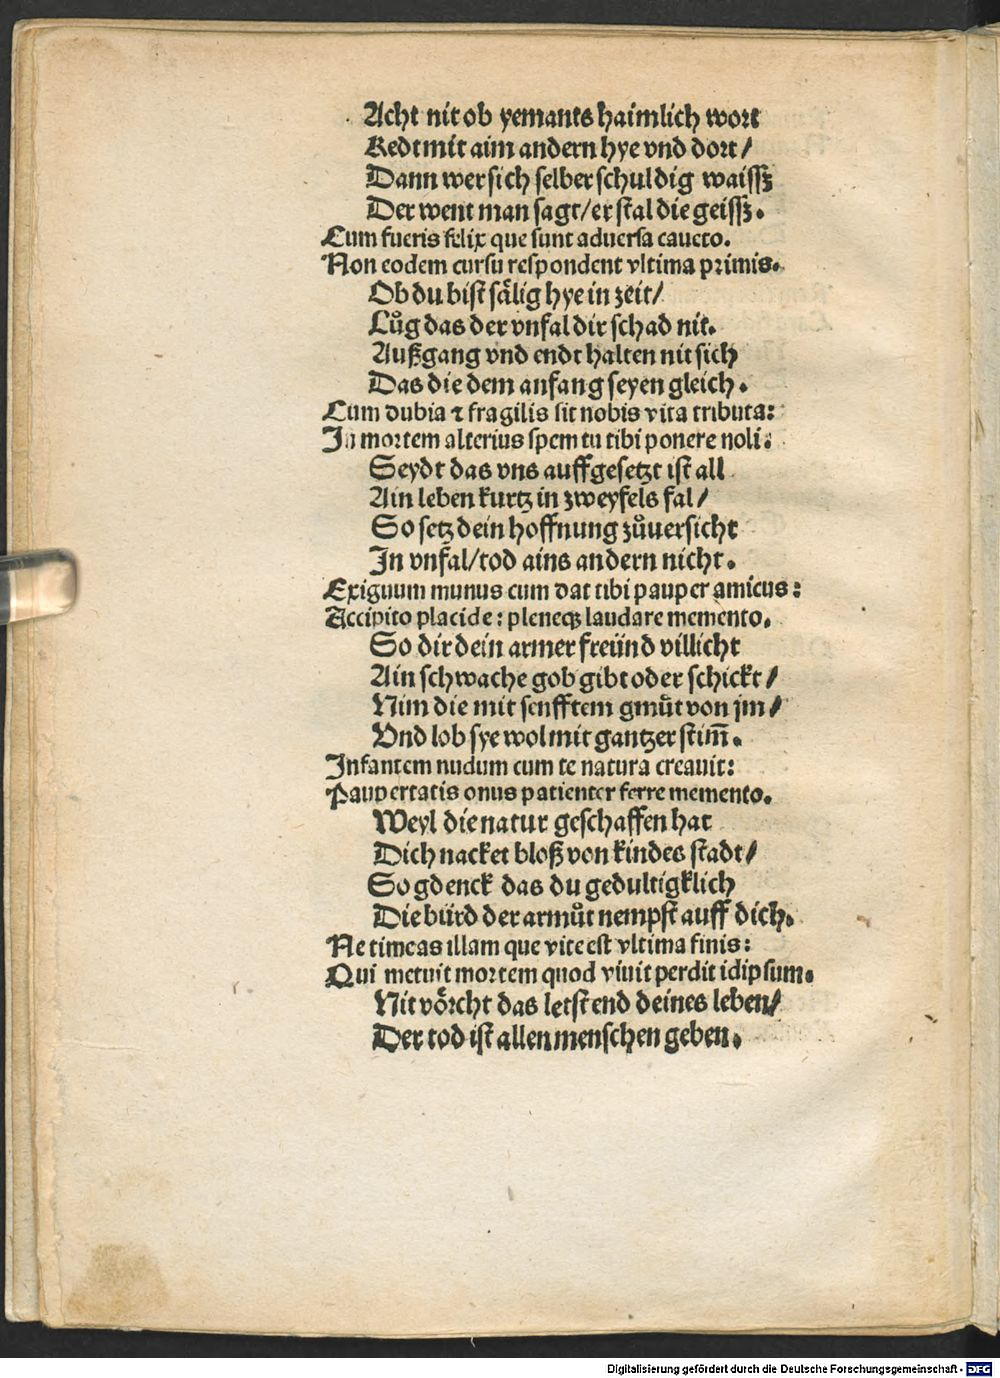 Acht nit ob yemants haimlich wort
Redt mit aim andern hye vnd dort/
Dann wer sich selber schuldig waissz
Der went man sagt/er stal die geissz.
Cum fueris felix que sunt aduersa caueto.
Non eodem cursu respondent vltima primis.
Ob du bist sälig hye in zeit/
Lůg das der vnfal dir schad nit.
Außgang vnd endt halten nit sich
Das die dem anfang seyen gleich.
Cum dubia ⁊ fragilis sit nobis vita tributa:
In mortem alterius spem tu tibi ponere noli:
Seydt das vns auffgesetzt ist all
Ain leben kurtz in zweyfels fal/
So setz dein hoffnung zůuersicht
In vnfal/tod ains andern nicht.
Exiguum munus cum dat tibi pauper amicus:
Accipito placide: pleneqꝫ laudare memento.
So dir dein armer freünd villicht
Ain schwache gob gibt oder schickt/
Nim die mit senfftem gmůt von jm/
Vnd lob sye wol mit gantzer stim̄.
Infantem nudum cum te natura creauit:
Paupertatis onus patienter ferre memento.
Weyl die natur geschaffen hat
Dich nacket bloß von kindes stadt/
So gdenck das du gedultigklich
Die bürd der armůt nempst auff dich.
Ne timeas illam que vite est vltima finis:
Qui metuit mortem quod viuit perdit idipsum.
Nit vörcht das letst end deines leben/
Der tod ist allen menschen geben.
Digitalisierung gefördert durch die Deutsche Forschungsgemeinschaft - DFG